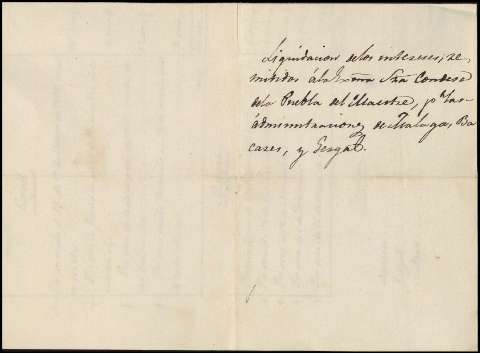 Liquidacion de los intereses, re-
mitidos á la Exma Sra Condesa
de la Puebla del Maestre, pr las
administraciones de Malaga, Ba
cares, y Gergal.